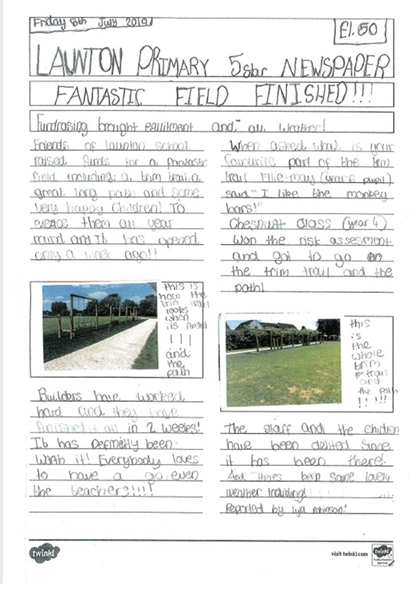 Friday 5th July 2019
£1.50
LAUNTON PRIMARY 5star NEWSPAPER
FANTASTIC FIELD FINISHED!!!
Fundrasing brought equitment and "all weather!
Friends of launton school
raised funds for a fantastic
field including: a trim trail, a
great long path and some
very happy Children! To
all year
round and It has opened
only a week ago!!
this is
how the
trim trail
looks
when
its finished
!!!
and
the
path
Builders have worked
hard and they have
finished it all in 2 weeks!
It has Definitly been
Worth it! Everybody loves
to have a go even
the teachers!!!!
When asked what is your
favourite part of the trim
trail Ellie-may (year 6 pupil)
said "I like the monkey
bars!"
Chesnust class (year 4)
Won the risk assesment
and got to go on
the trim trail and the
path!
this
is
the
whole
trim
trail
and
the path
!!!!!
The staff and the children
have been delited since
it has been there.
And theres been some lovely
weather Including!
Reported by
twinkl
visit twinkl.com
twinkl